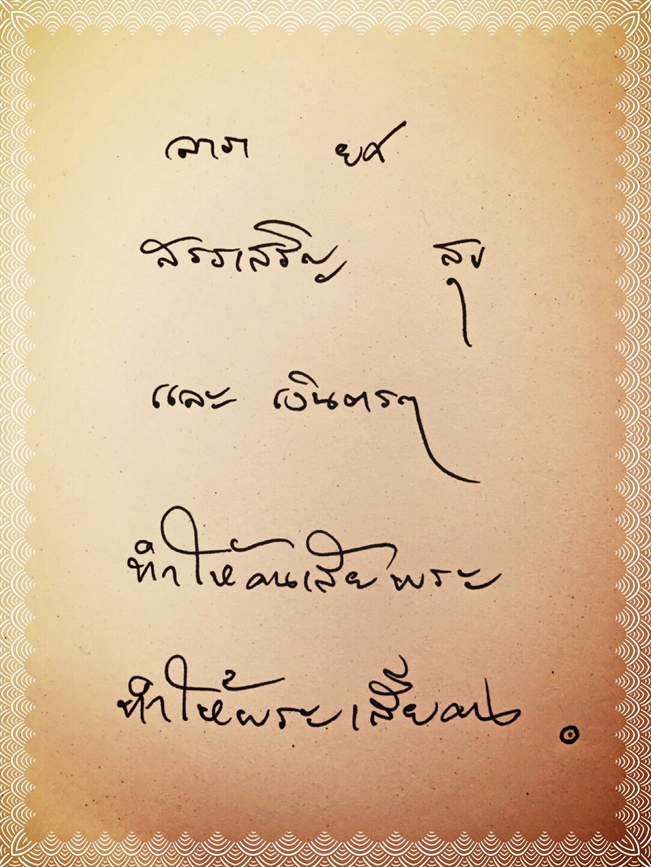 ลาภ ยศ
สรรเสริญ สุข
และ เงินตรา
ทำให้คนเสีย พระ
ทำให้พระ เสียคน